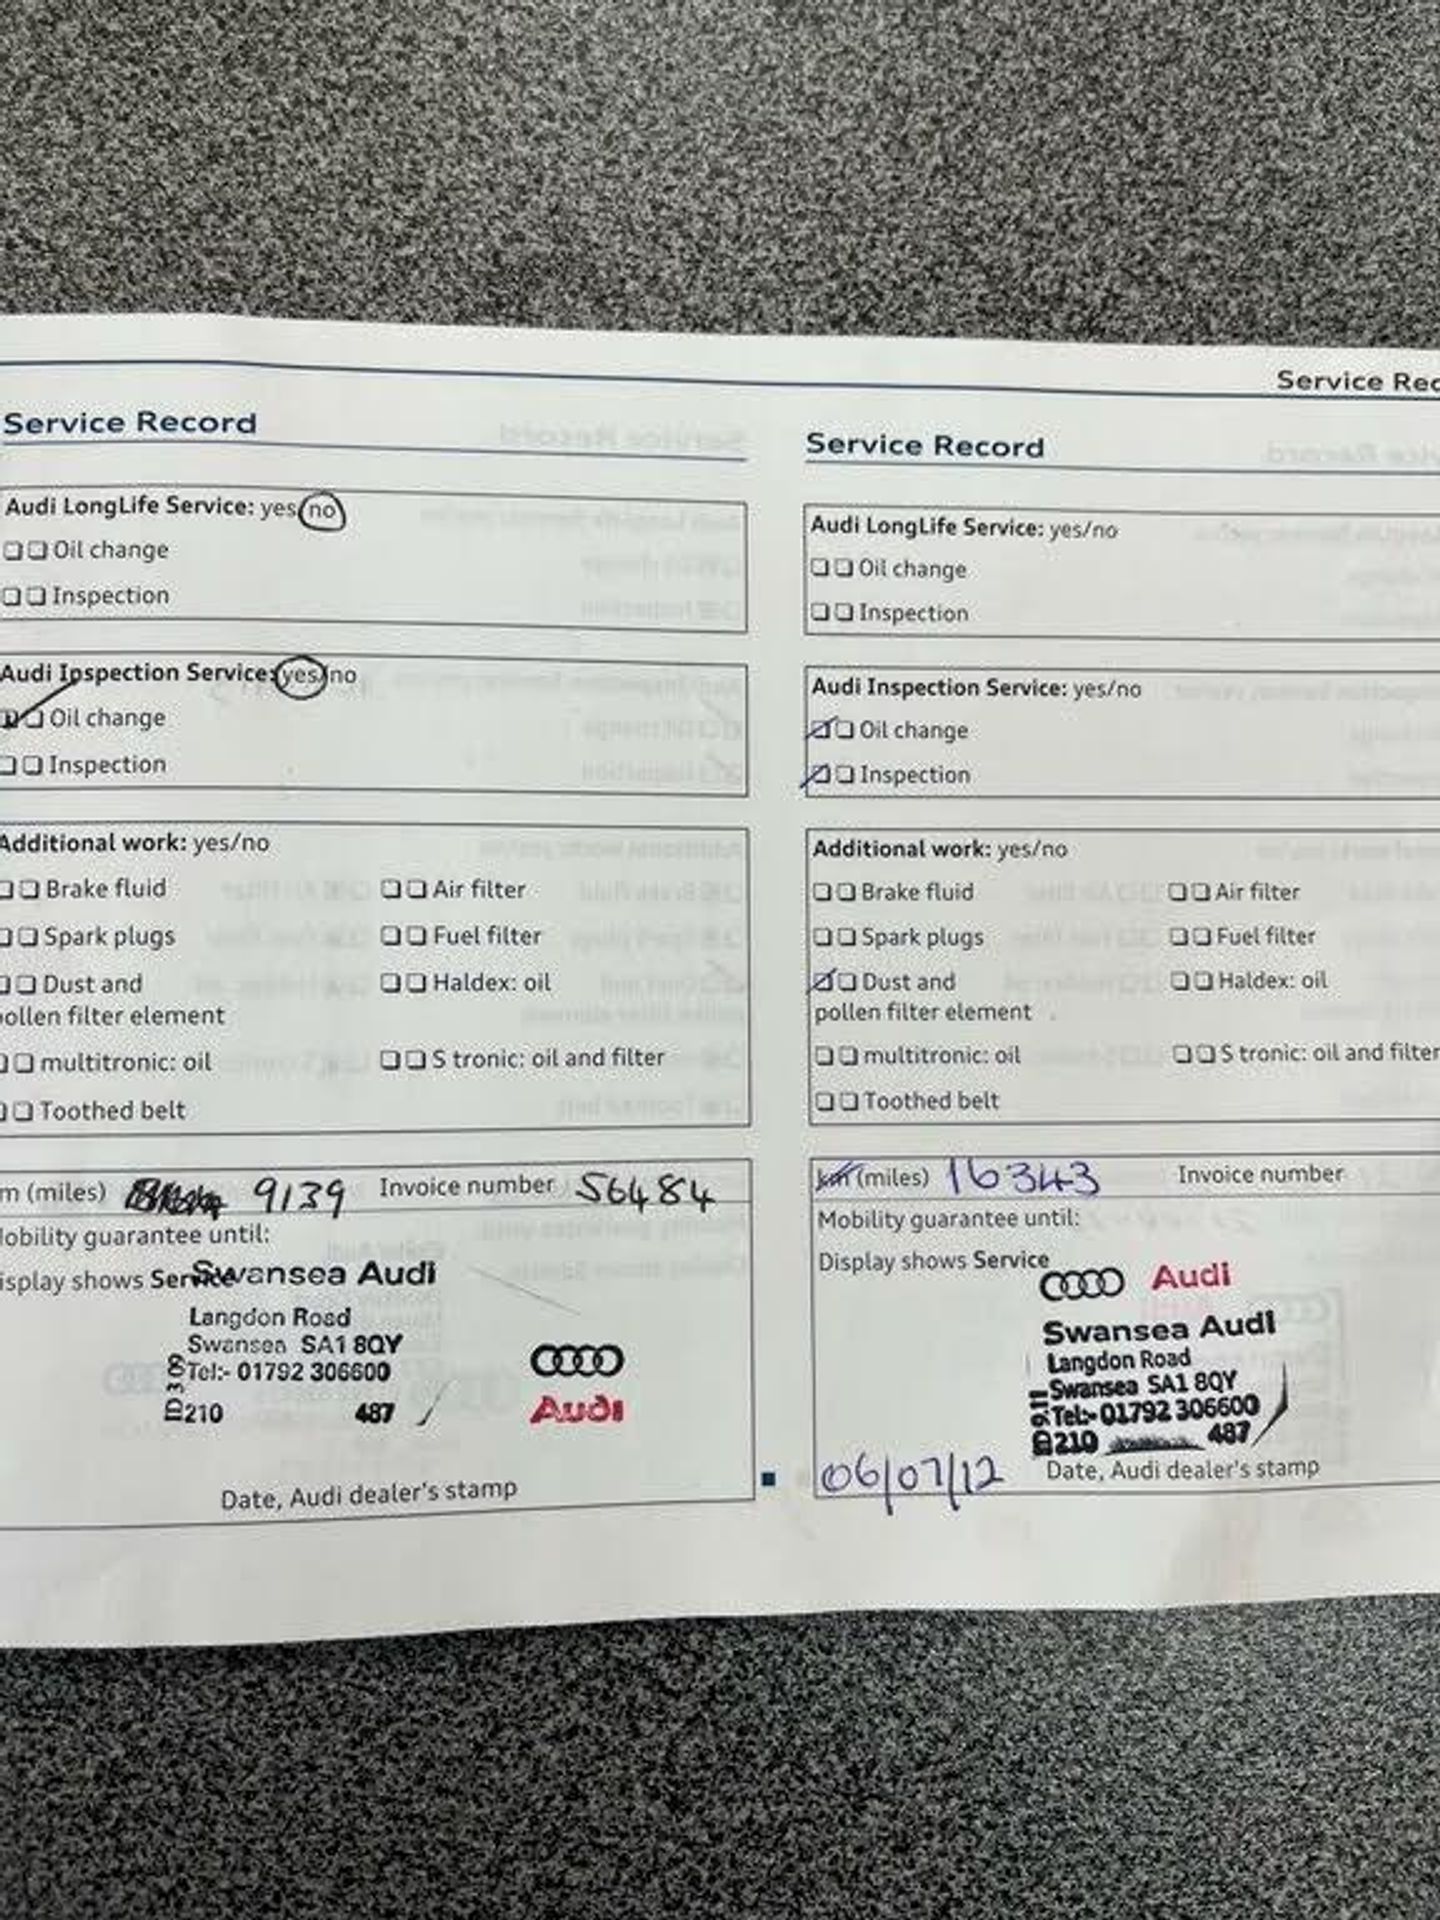 Service Rec
Service Record
Audi LongLife Service: yes/no
Oil change
Inspection
Audi Inspection Service: yes/no
Oil change
Inspection
Additional work: yes/no
Brake fluid
Air filter
Spark plugs
Fuel filter
Dust and
Haldex: oil
pollen filter element
multitronic: oil
S tronic: oil and filter
Toothed belt
m (miles) 9139 Invoice number 56484
Mobility guarantee until:
Display shows Service
Swansea Audi
Langdon Road
Swansea SA1 8QY
Tel:- 01792 306600
210 487
Audi
Date, Audi dealer's stamp
Service Record
Audi LongLife Service: yes/no
Oil change
Inspection
Audi Inspection Service: yes/no
Oil change
Inspection
Additional work: yes/no
Brake fluid
Air filter
Spark plugs
Fuel filter
Dust and
Haldex: oil
pollen filter element
multitronic: oil
S tronic: oil and filter
Toothed belt
km (miles) 16343 Invoice number
Mobility guarantee until:
Display shows Service
Audi
Swansea Audi
Langdon Road
Swansea SA1 8QY
Tel:- 01792 306600
210 487
06/07/12 Date, Audi dealer's stamp